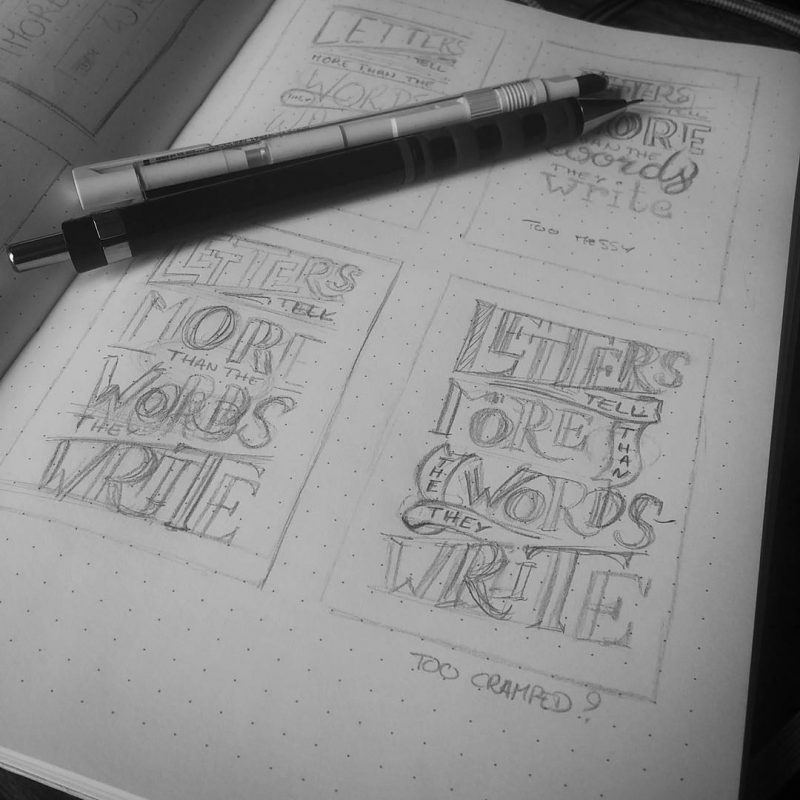 LETTERS
TELL
MORE THAN THE
WORDS
LETTERS
TELL
MORE
THAN THE
words
THEY
write
TOO MESSY
LETTERS
TELL
MORE
THAN THE
WORDS
THEY
WRITE
LETTERS
TELL
MORE
THAN
THE
WORDS
THEY
WRITE
TOO CRAMPED?